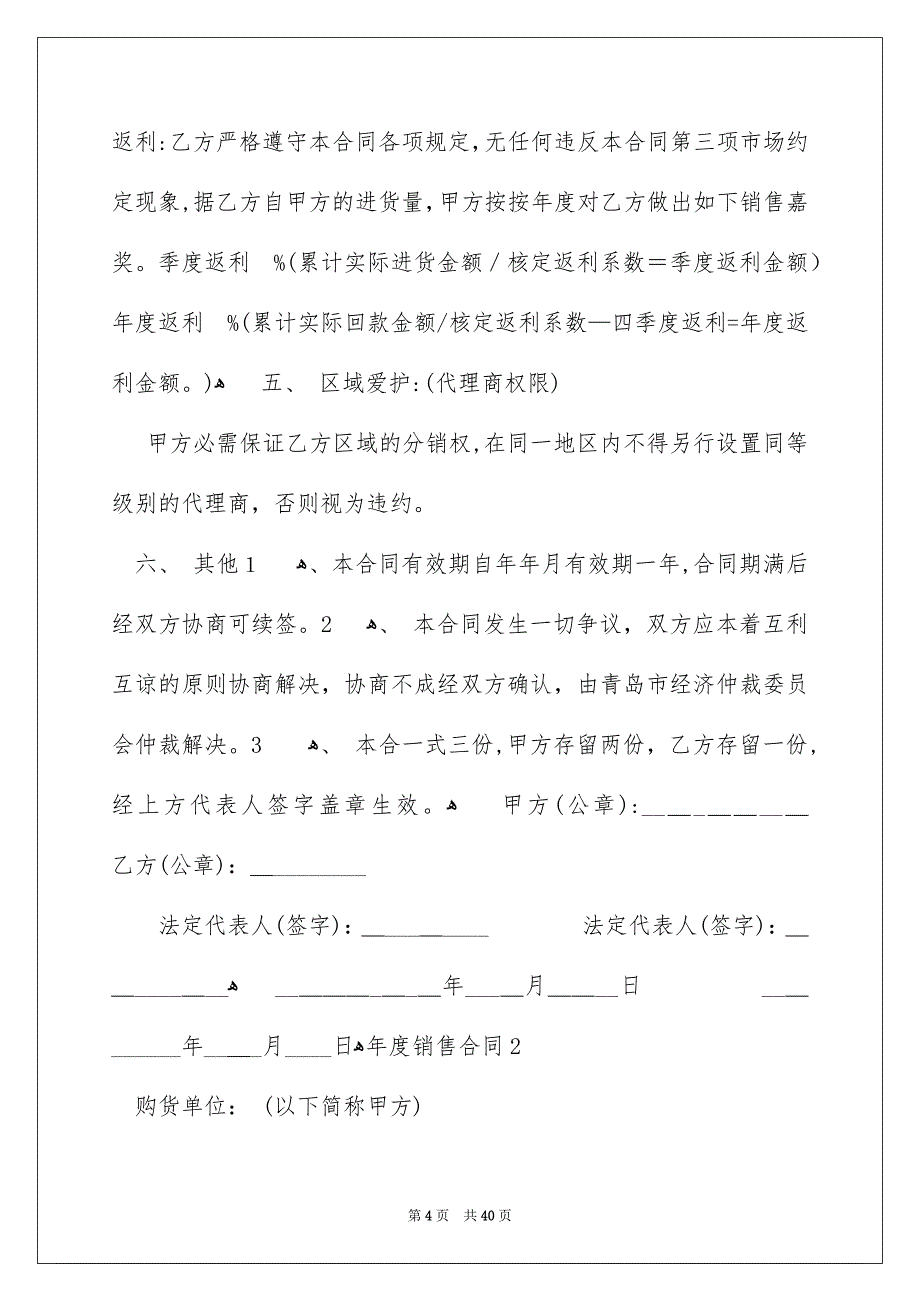 返利:乙方严格遵守本合同各项规定,无任何违反本合同第三项市场约
定现象,据乙方自甲方的进货量，甲方按按年度对乙方做出如下销售嘉
奖。季度返利　%(累计实际进货金额／核定返利系数＝季度返利金额)
年度返利　%(累计实际回款金额/核定返利系数—四季度返利=年度返
利金额。)ﻫ　五、 区域爱护:(代理商权限)
甲方必需保证乙方区域的分销权,在同一地区内不得另行设置同等
级别的代理商，否则视为违约。
六、 其他1　ﻫ、本合同有效期自年年月有效期一年,合同期满后
经双方协商可续签。2　ﻫ、 本合同发生一切争议，双方应本着互利
互谅的原则协商解决，协商不成经双方确认，由青岛市经济仲裁委员
会仲裁解决。3　ﻫ、 本合一式三份,甲方存留两份，乙方存留一份,
经上方代表人签字盖章生效。ﻫ　甲方(公章):_____________
乙方(公章)：__________
法定代表人(签字)：___________　　法定代表人(签字)：__
__________ﻫ　______________年_____月______日　　____
______年_____月____日ﻫ年度销售合同2
购货单位： (以下简称甲方)
第 4 页　共 40 页